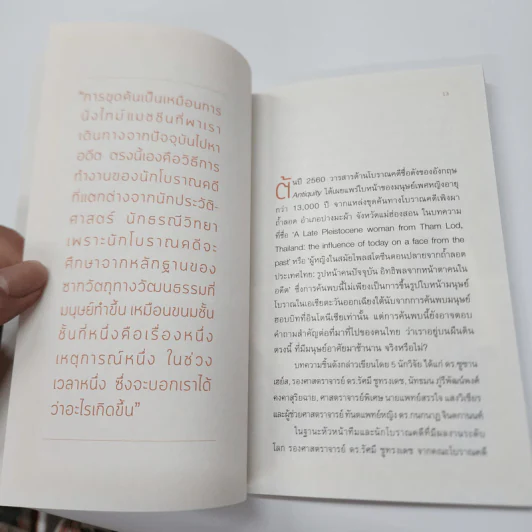 "การขุดค้นเป็นเหมือนการ
นั่งไทม์แมชชีนที่พาเรา
เดินทางจากปัจจุบันไปหา
อดีต ตรงนี้เองคือวิธีการ
ทำงานของนักโบราณคดี
ที่แตกต่างจากนักประวัติ-
ศาสตร์ นักธรณีวิทยา
เพราะนักโบราณคดีจะ
ศึกษาจากหลักฐานของ
ซากวัตถุทางวัฒนธรรมที่
มนุษย์ทำขึ้น เหมือนขนมชั้น
ชั้นที่หนึ่งคือเรื่องหนึ่ง
เหตุการณ์หนึ่ง ในช่วง
เวลาหนึ่ง ซึ่งจะบอกเราได้
ว่าอะไรเกิดขึ้น"
ต้นปี 2560 วารสารด้านโบราณคดีชื่อดังของอังกฤษ
Antiquity ได้เผยแพร่ใบหน้าของมนุษย์เพศหญิงอายุ
กว่า 13,000 ปี จากแหล่งขุดค้นทางโบราณคดีเพิงผา
ถ้ำลอด อำเภอปางมะผ้า จังหวัดแม่ฮ่องสอน ในบทความ
ที่ชื่อ 'A Late Pleistocene woman from Tham Lod,
Thailand: the influence of today on a face from the
past' หรือ 'ผู้หญิงในสมัยไพลสโตซีนตอนปลายจากถ้ำลอด
ประเทศไทย: รูปหน้าคนปัจจุบัน อิทธิพลจากหน้าตาคนใน
อดีต' ซึ่งการค้นพบนี้ไม่เพียงเป็นการขึ้นรูปใบหน้ามนุษย์
โบราณในเอเชียตะวันออกเฉียงใต้นับจากการค้นพบมนุษย์
ฮอบบิทที่อินโดนีเซียเท่านั้น แต่การค้นพบนี้ยังอาจตอบ
คำถามสำคัญต่อที่มาที่ไปของคนไทย ว่าเราอยู่บนผืนดิน
ตรงนี้ ที่มีมนุษย์อาศัยมาช้านาน จริงหรือไม่?
บทความชิ้นดังกล่าวเขียนโดย 5 นักวิจัย ได้แก่ ดร.ซูซาน
เฮย์ส, รองศาสตราจารย์ ดร.รัศมี ชูทรงเดช, นัทธมน ภู่รีพัฒน์พงศ์
คงศาสุริยฉาย, ศาสตราจารย์พิเศษ นายแพทย์สรรใจ แสงวิเชียร
และผู้ช่วยศาสตราจารย์ ทันตแพทย์หญิง ดร.กนกนาฏ จินตกานนท์
ในฐานะหัวหน้าทีมและนักโบราณคดีที่มีผลงานระดับ
โลก รองศาสตราจารย์ ดร.รัศมี ชูทรงเดช จากคณะโบราณคดี